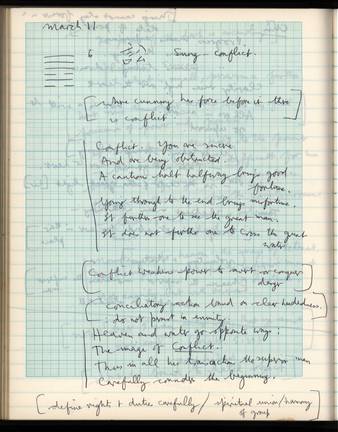 March 11
6 訟 Sung conflict.
[ where cunning has force before it there
is conflict ]
Conflict. You are sincere
And are being obstructed.
A cautious halt halfway brings good
fortune.
Going through to the end brings misfortune.
It furthers one to see the great man.
It does not further one to cross the great
water.
[ Conflict weakens power to meet or conquer
danger ]
[ Conciliatory action based on clear headedness.
do not persist in enmity. ]
Heaven and water go opposite ways:
The image of Conflict.
Thus in all his transactions the superior man
Carefully considers the beginning.
[ define rights & duties carefully / spiritual union/harmony
of group